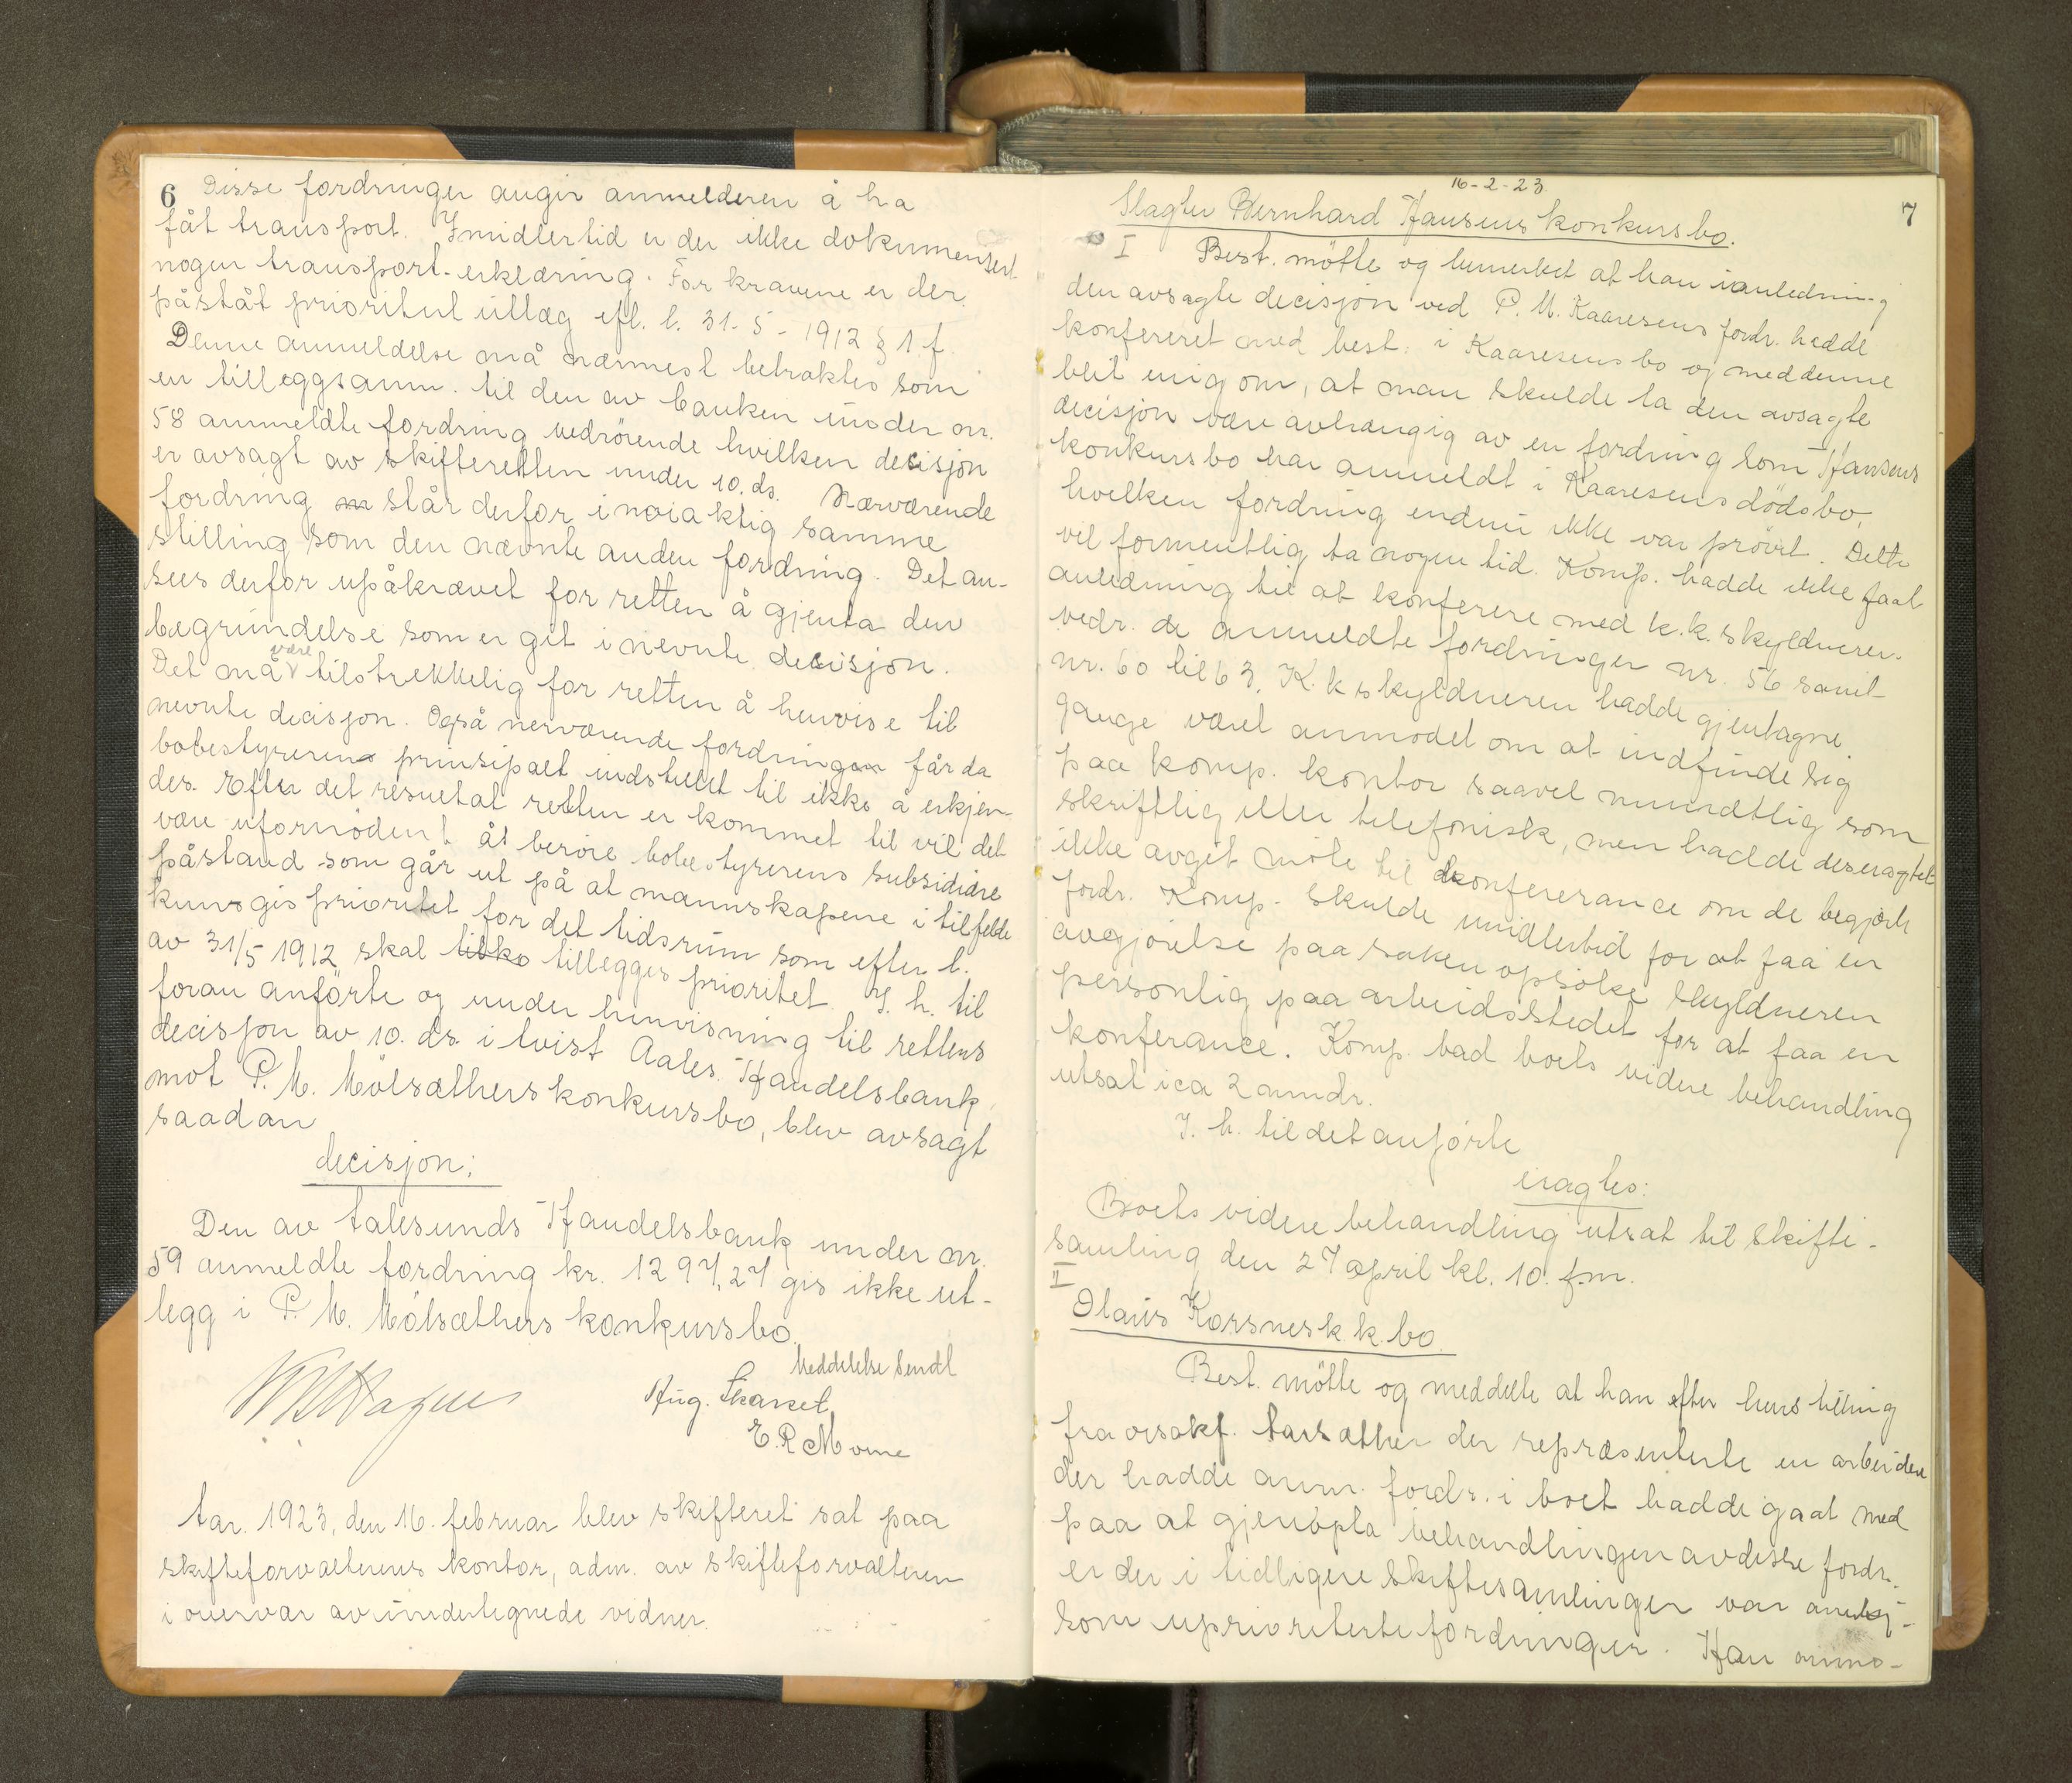 6 Disse fordringer angir anmelderen å ha
fåt transport. Imidlertid er der ikke dokumentert
nogen transport-erklæring. For kravene er der
påståt prioritert utlæg efl. l. 31-5-1912 § 1.f.
Denne anmeldelse må nærmest betraktes som
en tilleggsanm. til den av banken under nr.
58 anmeldte fordring vedrörende hvilken decisjon
er avsagt av skifteretten under 10. ds. Nærværende
fordring står derfor i nöiaktig samme
stilling som den nævnte anden fordring. Det an-
sees derfor upåkrævet for retten å gjenta den
begrundelse som er git i nevnte decisjon.
Det må være tilstrekkelig for retten å henvise til
nevnte decisjon. Også nerværende fordringen får da
bobestyreren principalt indstillet til ikke å erkjen-
des. Efter det resultat retten er kommet til vil det
være ufornödent åt beröre bobestyrerens subsidiære
påstand som går ut på at mannskapene i tilfelde
kun gis prioritet for det tidsrum som efter l.
av 31/5 1912 skal tilko tillegges prioritet. I. h. til
foran anförte og under henvisning til rettens
decisjon av 10. ds. i tvist Aales. Handelsbank
mot P. M. Mölsæthers konkursbo, blev avsagt
saadan
decisjon:
Den av Aalesunds Handelsbank under nr.
59 anmeldte fordring kr. 1297,27 gis ikke ut-
legg i P. M. Mölsæthers konkursbo.
Meddelelse sendt
Aug. Skarset
E. R. Morne
Aar. 1923, den 16. februar blev skifteret sat paa
skifteforvalterens kontor, adm. av skifteforvalteren
i overvær av undertegnede vidner.
16-2-23
7
Slagter Bernhard Hansens konkursbo.
I Best. mötte og bemerket at han i anledning
den avsagte decisjon ved P. M. Kaaresens fordr. hadde
konfereret med best. i Kaaresens bo og med denne
blit enig om, at man skulde la den avsagte
decisjon være avhængig av en fordring som Hansens
konkursbo har anmeldt i Kaaresens dödsbo,
hvilken fordring endnu ikke var prövet. Dette
vil formentlig ta nogen tid. Komp. hadde ikke faat
anledning til at konferere med k.k. skyldneren
vedr. de anmeldte fordringer nr. 56 samt
nr. 60 til 63. K. k skyldneren hadde gjentagne
gange været anmodet om at indfinde sig
paa komp. kontor saavel mundtlig som
skriftlig eller telefonisk, men hadde desuagtet
ikke avgit möte til konfererance om de begjærte
fordr. Komp. skulde imidlertid for at faa en
avgjörelse paa saken opsöke skyldneren
personlig paa arbeidsstedet for at faa en
konferance. Komp. bad boets videre behandling
utsat i ca 2 mndr.
I. h. til det anförte
eragtes:
Boets videre behandling utsat til skifte-
samling den 27 april kl. 10. fm.
II
Olaus Korsnes k.k. bo.
Best. mötte og meddelte at han efter henstilling
fra orsakf. Aarsæther der repræsenterte en arbeidere
der hadde anm. fordr. i boet hadde gaat med
paa at gjenopta behandlingen av disse fordr.
er der i tidligere skiftesamlinger var anerkj-
som uprioriterte fordringer. Han anmo-